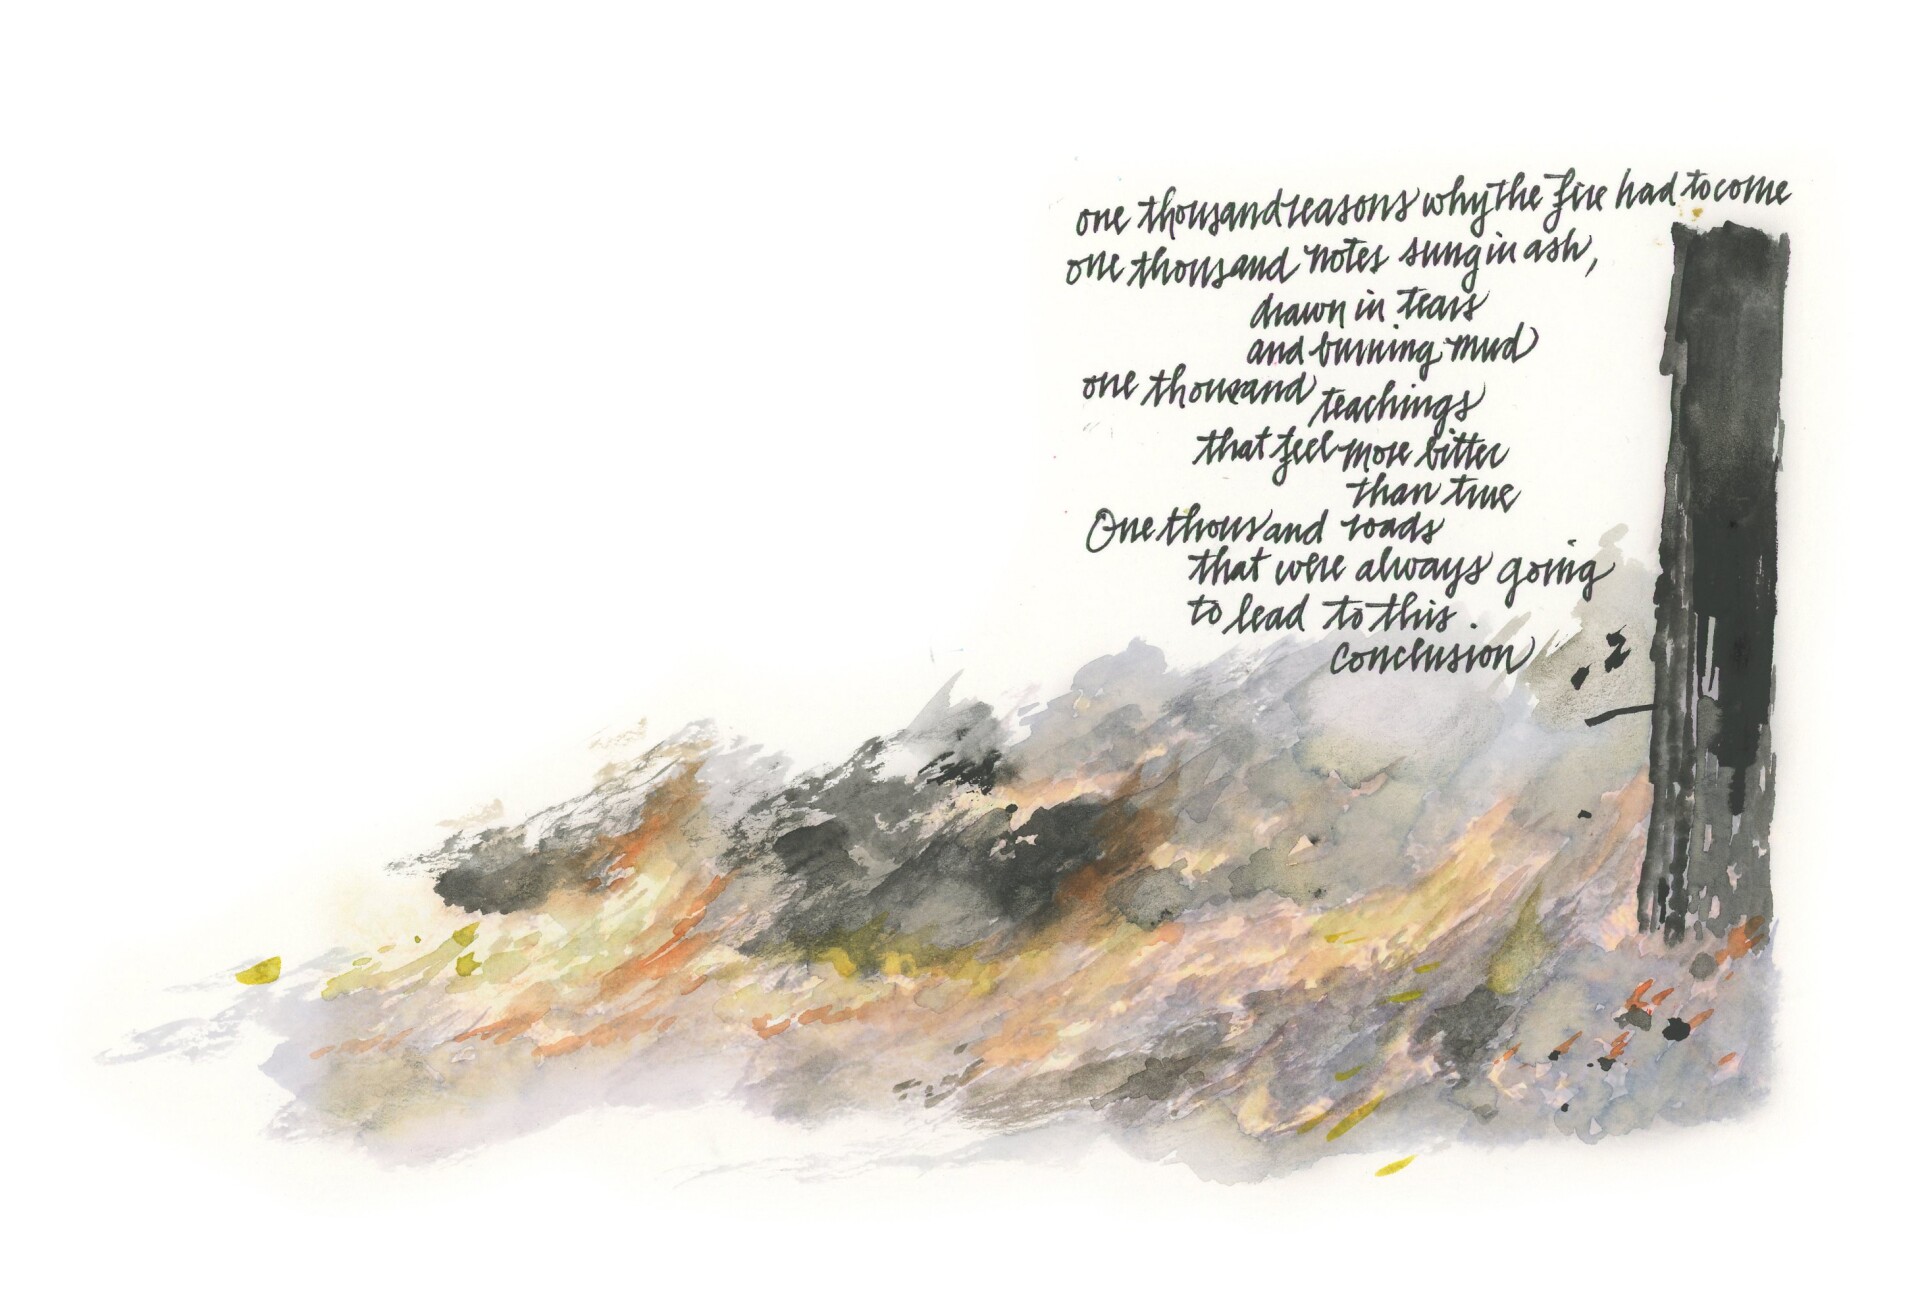 one thousand reasons why the fire had to come
one thousand notes sung in ash,
drawn in tears
and burning mud
one thousand teachings
that feel more bitter
than true
One thousand roads
that were always going
to lead to this.
Conclusion